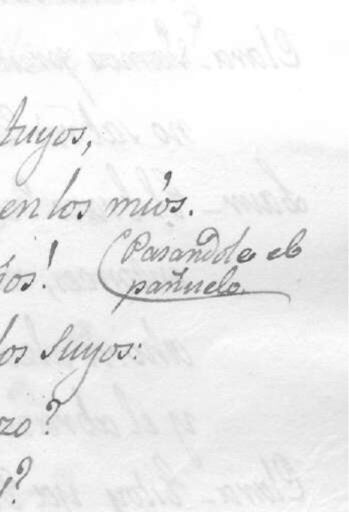 tuyos,
en los mios.
ños! (Pasandole el
pañuelo.
los suyos:
zo?